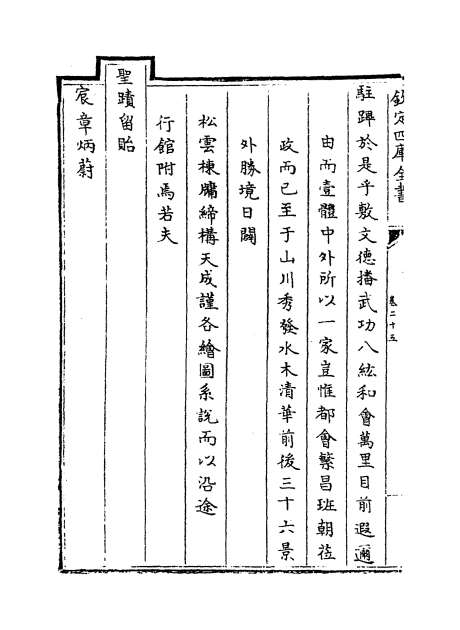 欽定四庫全書
卷二十五
駐蹕於是乎敷文德播武功八紘和會萬里目前遐邇
由而壹體中外所以一家豈惟都會繁昌班朝蒞
政而已至于山川秀發水木清華前後三十六景
外勝境日闢
松雲棟牖締構天成謹各繪圖系説而以沿途
行館附焉若夫
聖蹟留貽
宸章炳蔚